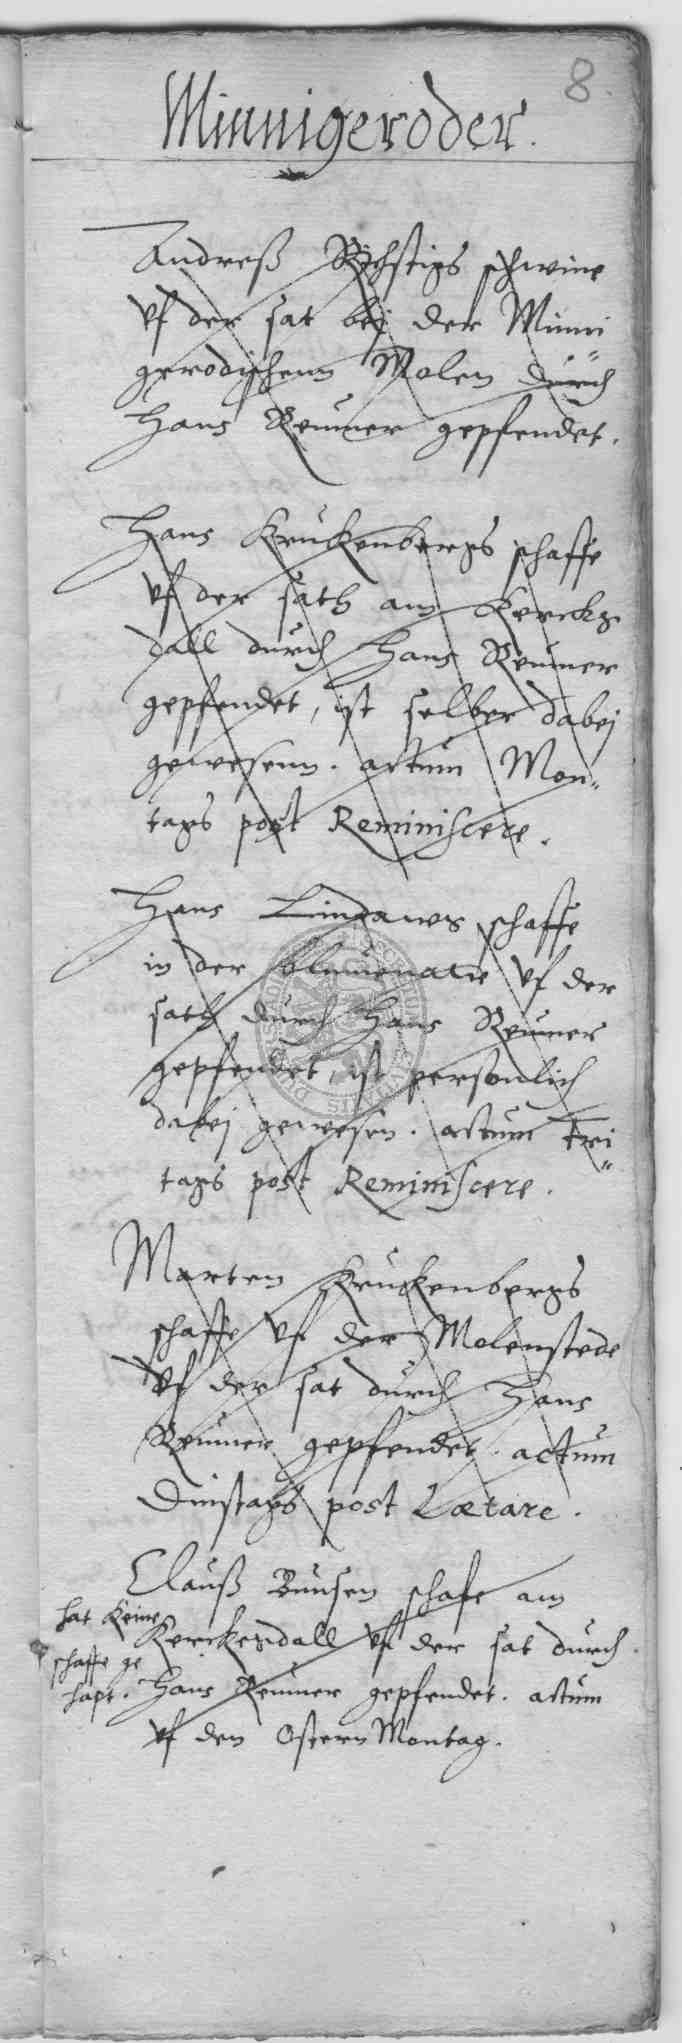 8.
Minnigeroder.
Andreß Richstigs schwine
vf der sat bej der Minni
gerodischenn Molen durch
Hans Reumer gepfendet.
Hans Krukenbergs schaffe
vf der sath am Kerckge
dall durch Hans Reumer
gepfendet, ist selber dabej
gewesenn. actum Mon„
tags post Reminiscere.
Hans Lindawes schaffe
in der vf der
sath durch Hans Reumer
gepfendet, ist personlich
dabej gewesen. actum Fri„
tags post Reminiscere.
Marten Krukenbergs
schaffe vf der Molenstede
vf der sat durch Hans
Reumer gepfendet. actum
Dinstags post Lætare.
Clauß Bunsen schafe am
Kerckegdall vf der sat durch
Hans Reumer gepfendet. actum
vf den Ostern Montag.
hat keine
schaffe ge
hapt.